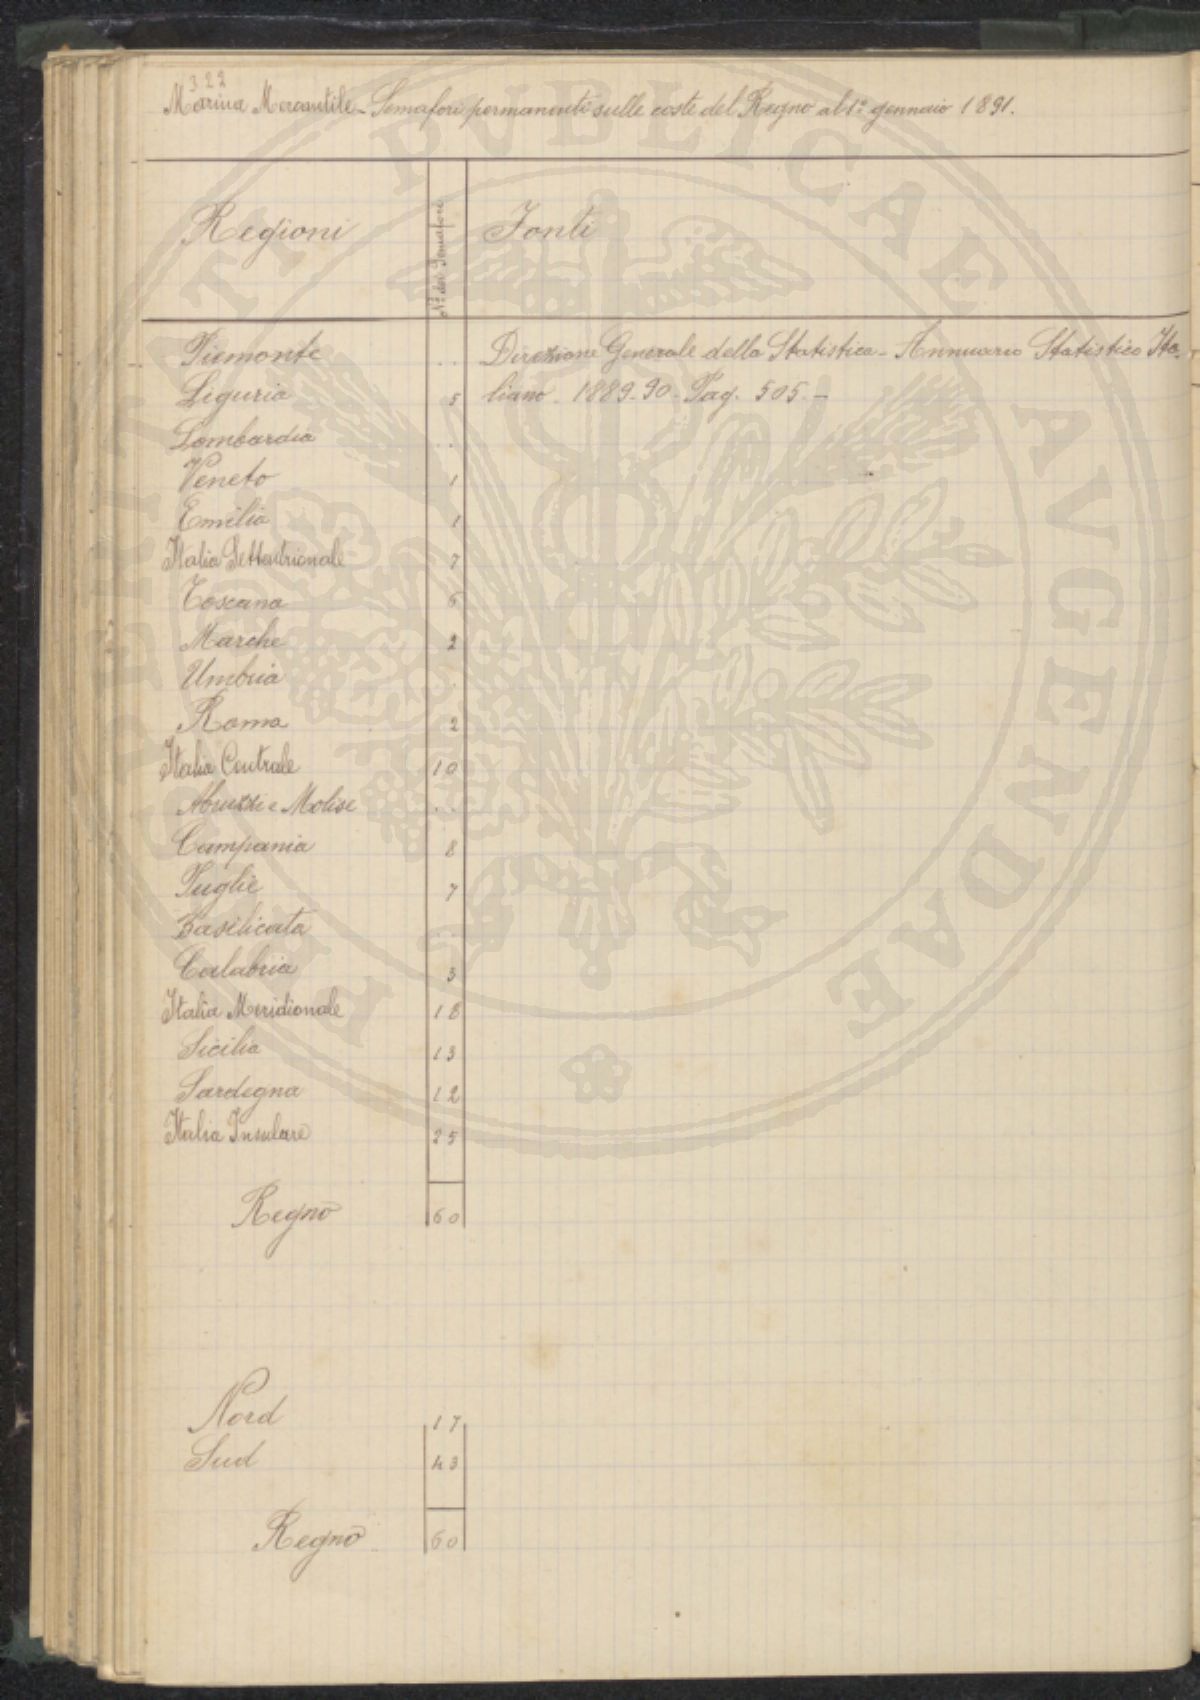 322
Marina Mercantile - Semafori permanenti sulle coste del Regno al 1º gennaio 1891.
Regioni Nº dei Semafori Fonti
Piemonte .. Direzione Generale della Statistica - Annuario Statistico Ita-
Liguria 5 liano 1889-90 - Pag. 505. -
Lombardia ..
Veneto 1
Emilia 1
Italia Settentrionale 7
Toscana 6
Marche 2
Umbria ..
Roma 2
Italia Centrale 10
Abruzzi e Molise ..
Campania 8
Puglie 7
Basilicata ..
Calabria 3
Italia Meridionale 18
Sicilia 13
Sardegna 12
Italia Insulare 25
Regno 60
Nord 17
Sud 43
Regno 60
PUBLICAE
AVGENDAE